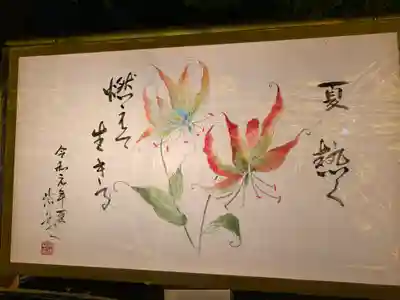 夏
熱く
燃えて
生きる
令和元年夏